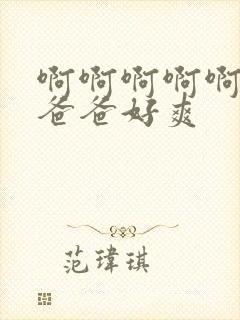 啊啊啊啊啊
爸爸好爽
范瑋琪